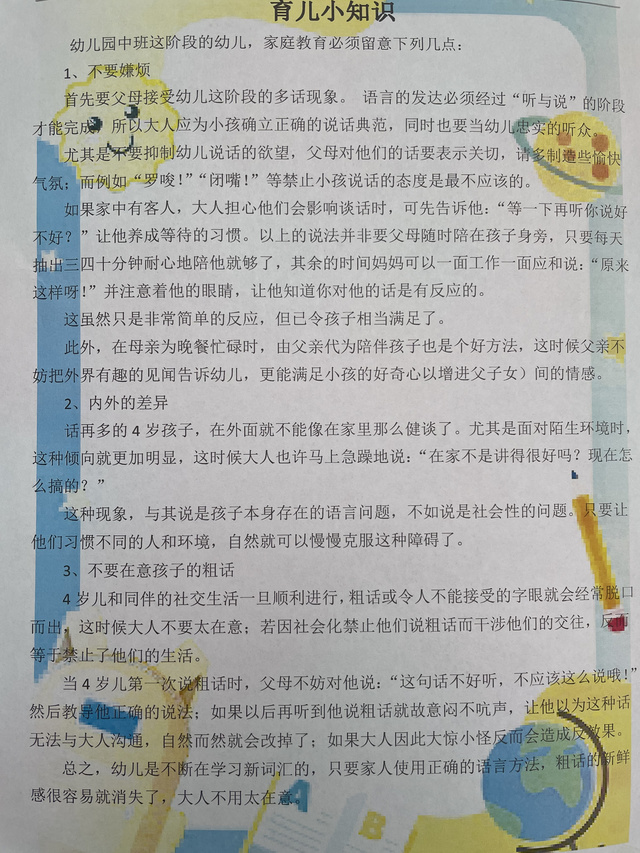 育儿小知识
幼儿园中班这阶段的幼儿，家庭教育必须留意下列几点：
1、不要嫌烦
首先要父母接受幼儿这阶段的多话现象。 语言的发达必须经过“听与说”的阶段
才能完成，所以大人应为小孩确立正确的说话典范，同时也要当幼儿忠实的听众。
尤其是不要抑制幼儿说话的欲望，父母对他们的话要表示关切，请多制造些愉快
气氛；而例如“罗唆！”“闭嘴！”等禁止小孩说话的态度是最不应该的。
如果家中有客人，大人担心他们会影响谈话时，可先告诉他：“等一下再听你说好
不好？”让他养成等待的习惯。以上的说法并非要父母随时陪在孩子身旁，只要每天
抽出三四十分钟耐心地陪他就够了，其余的时间妈妈可以一面工作一面应和说：“原来
这样呀！”并注意着他的眼睛，让他知道你对他的话是有反应的。
这虽然只是非常简单的反应，但已令孩子相当满足了。
此外，在母亲为晚餐忙碌时，由父亲代为陪伴孩子也是个好方法，这时候父亲不
妨把外界有趣的见闻告诉幼儿，更能满足小孩的好奇心以增进父子女）间的情感。
2、内外的差异
话再多的 4 岁孩子，在外面就不能像在家里那么健谈了。尤其是面对陌生环境时，
这种倾向就更加明显，这时候大人也许马上急躁地说：“在家不是讲得很好吗？现在怎
么搞的？”
这种现象，与其说是孩子本身存在的语言问题，不如说是社会性的问题。只要让
他们习惯不同的人和环境，自然就可以慢慢克服这种障碍了。
3、不要在意孩子的粗话
4 岁儿和同伴的社交生活一旦顺利进行，粗话或令人不能接受的字眼就会经常脱口
而出，这时候大人不要太在意；若因社会化禁止他们说粗话而干涉他们的交往，反而
等于禁止了他们的生活。
当 4 岁儿第一次说粗话时，父母不妨对他说：“这句话不好听，不应该这么说哦！”
然后教导他正确的说法；如果以后再听到他说粗话就故意闷不吭声，让他以为这种话
无法与大人沟通，自然而然就会改掉了；如果大人因此大惊小怪反而会造成反效果。
总之，幼儿是不断在学习新词汇的，只要家人使用正确的语言方法，粗话的新鲜
感很容易就消失了，大人不用太在意。
A
B